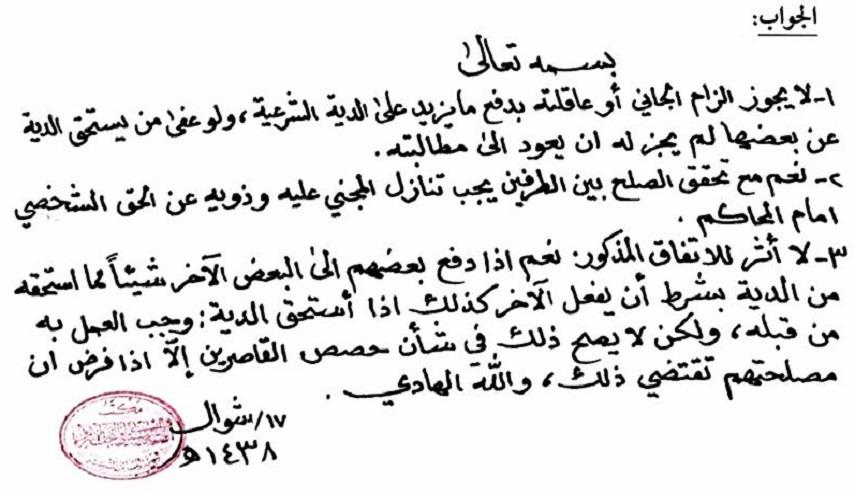 الجواب:
بسمه تعالى
١- لا يجوز الزام الجاني أو عاقلته بدفع ما يزيد على الدية الشرعية، ولو عفى من يستحق الدية
عن بعضها لم يجز له ان يعود الى مطالبته.
٢- نعم مع تحقق الصلح بين الطرفين يجب تنازل المجني عليه وذويه عن الحق الشخصي
امام المحاكم.
٣- لا أثر للاتفاق المذكور: نعم اذا دفع بعضهم الى البعض الآخر شيئاً مما استحقه
من الدية بشرط أن يفعل الآخر كذلك اذا أستحق الدية: وجب العمل به
من قبله، ولكن لا يصح ذلك في شأن حصص القاصرين إلّا اذا فرض ان
مصلحتهم تقتضي ذلك، والله الهادي.
١٧/شوال
١٤٣٨هـ
مكتب